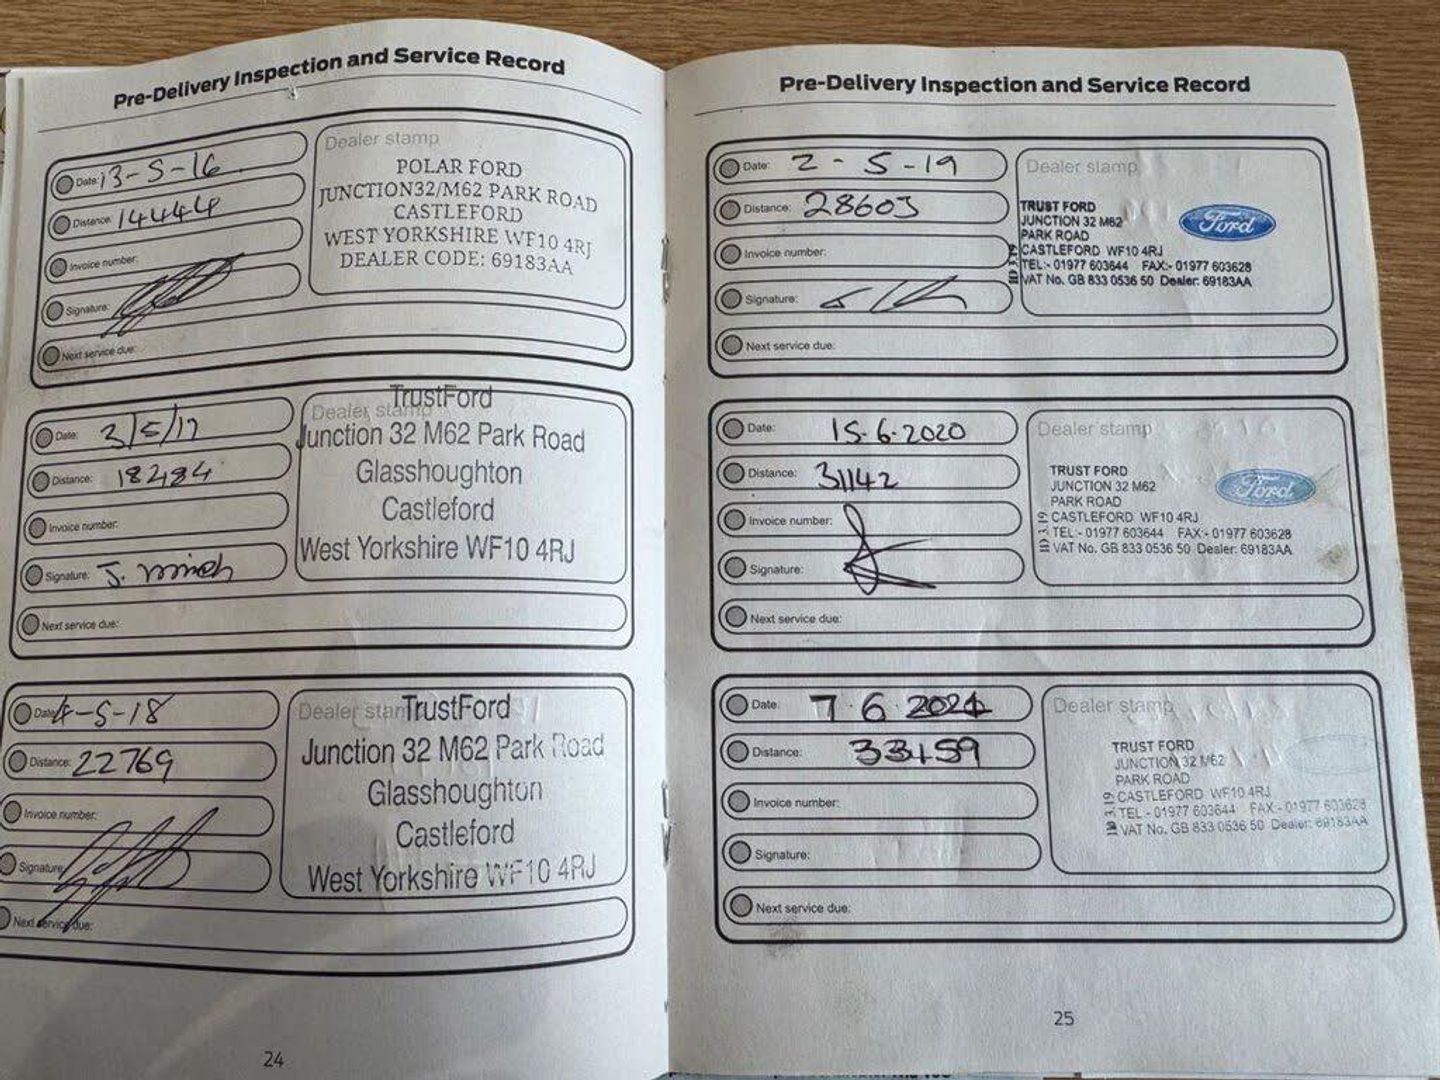 Pre-Delivery Inspection and Service Record
Date: 13-5-16
Distance: 14444
Invoice number:
Signature:
Next service due:
Dealer stamp
POLAR FORD
JUNCTION32/M62 PARK ROAD
CASTLEFORD
WEST YORKSHIRE WF10 4RJ
DEALER CODE: 69183AA
Date: 3/5/17
Distance: 18484
Invoice number:
Signature: J.
Next service due:
Dealer stamp
TrustFord
Junction 32 M62 Park Road
Glasshoughton
Castleford
West Yorkshire WF10 4RJ
Date: 4-5-18
Distance: 22769
Invoice number:
Signature:
Next service due:
Dealer stamp
TrustFord
Junction 32 M62 Park Road
Glasshoughton
Castleford
West Yorkshire WF10 4RJ
24
Pre-Delivery Inspection and Service Record
Date: 2-5-19
Distance: 28603
Invoice number:
Signature:
Next service due:
Dealer stamp
TRUST FORD
JUNCTION 32 M62
PARK ROAD
CASTLEFORD WF10 4RJ
TEL:- 01977 603644 FAX:- 01977 603628
VAT No. GB 833 0536 50 Dealer: 69183AA
Ford
Date: 15-6-2020
Distance: 31142
Invoice number:
Signature:
Next service due:
Dealer stamp
TRUST FORD
JUNCTION 32 M62
PARK ROAD
CASTLEFORD WF10 4RJ
TEL:- 01977 603644 FAX:- 01977 603628
VAT No. GB 833 0536 50 Dealer: 69183AA
Ford
Date: 7.6.2021
Distance: 33459
Invoice number:
Signature:
Next service due:
Dealer stamp
TRUST FORD
JUNCTION 32 M62
PARK ROAD
CASTLEFORD WF10 4RJ
TEL - 01977 603644 FAX - 01977 603628
VAT No. GB 833 0536 50 Dealer: 69183AA
25